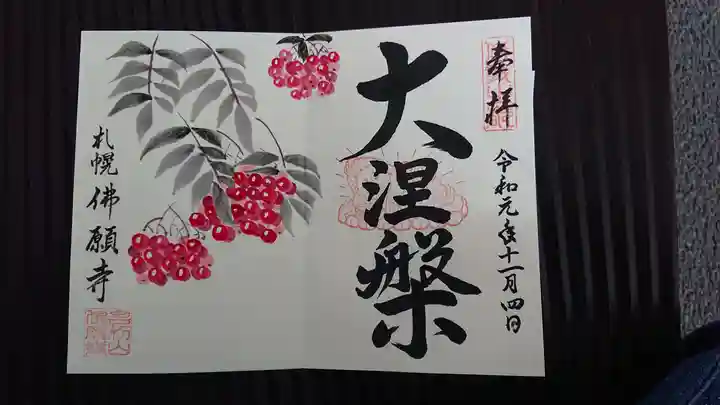 奉拝
令和元年十一月四日
大涅槃
札幌佛願寺